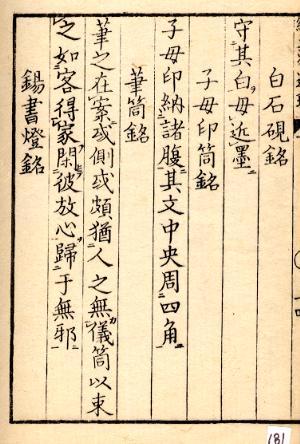 白石硯銘
守其白毋近墨
子母印筒銘
子母印納諸腹其文中央周四角
筆筒銘
筆之在案或側或頗猶人之無儀筒以束
之如客得家閑彼放心歸于無邪
錫書燈銘
181